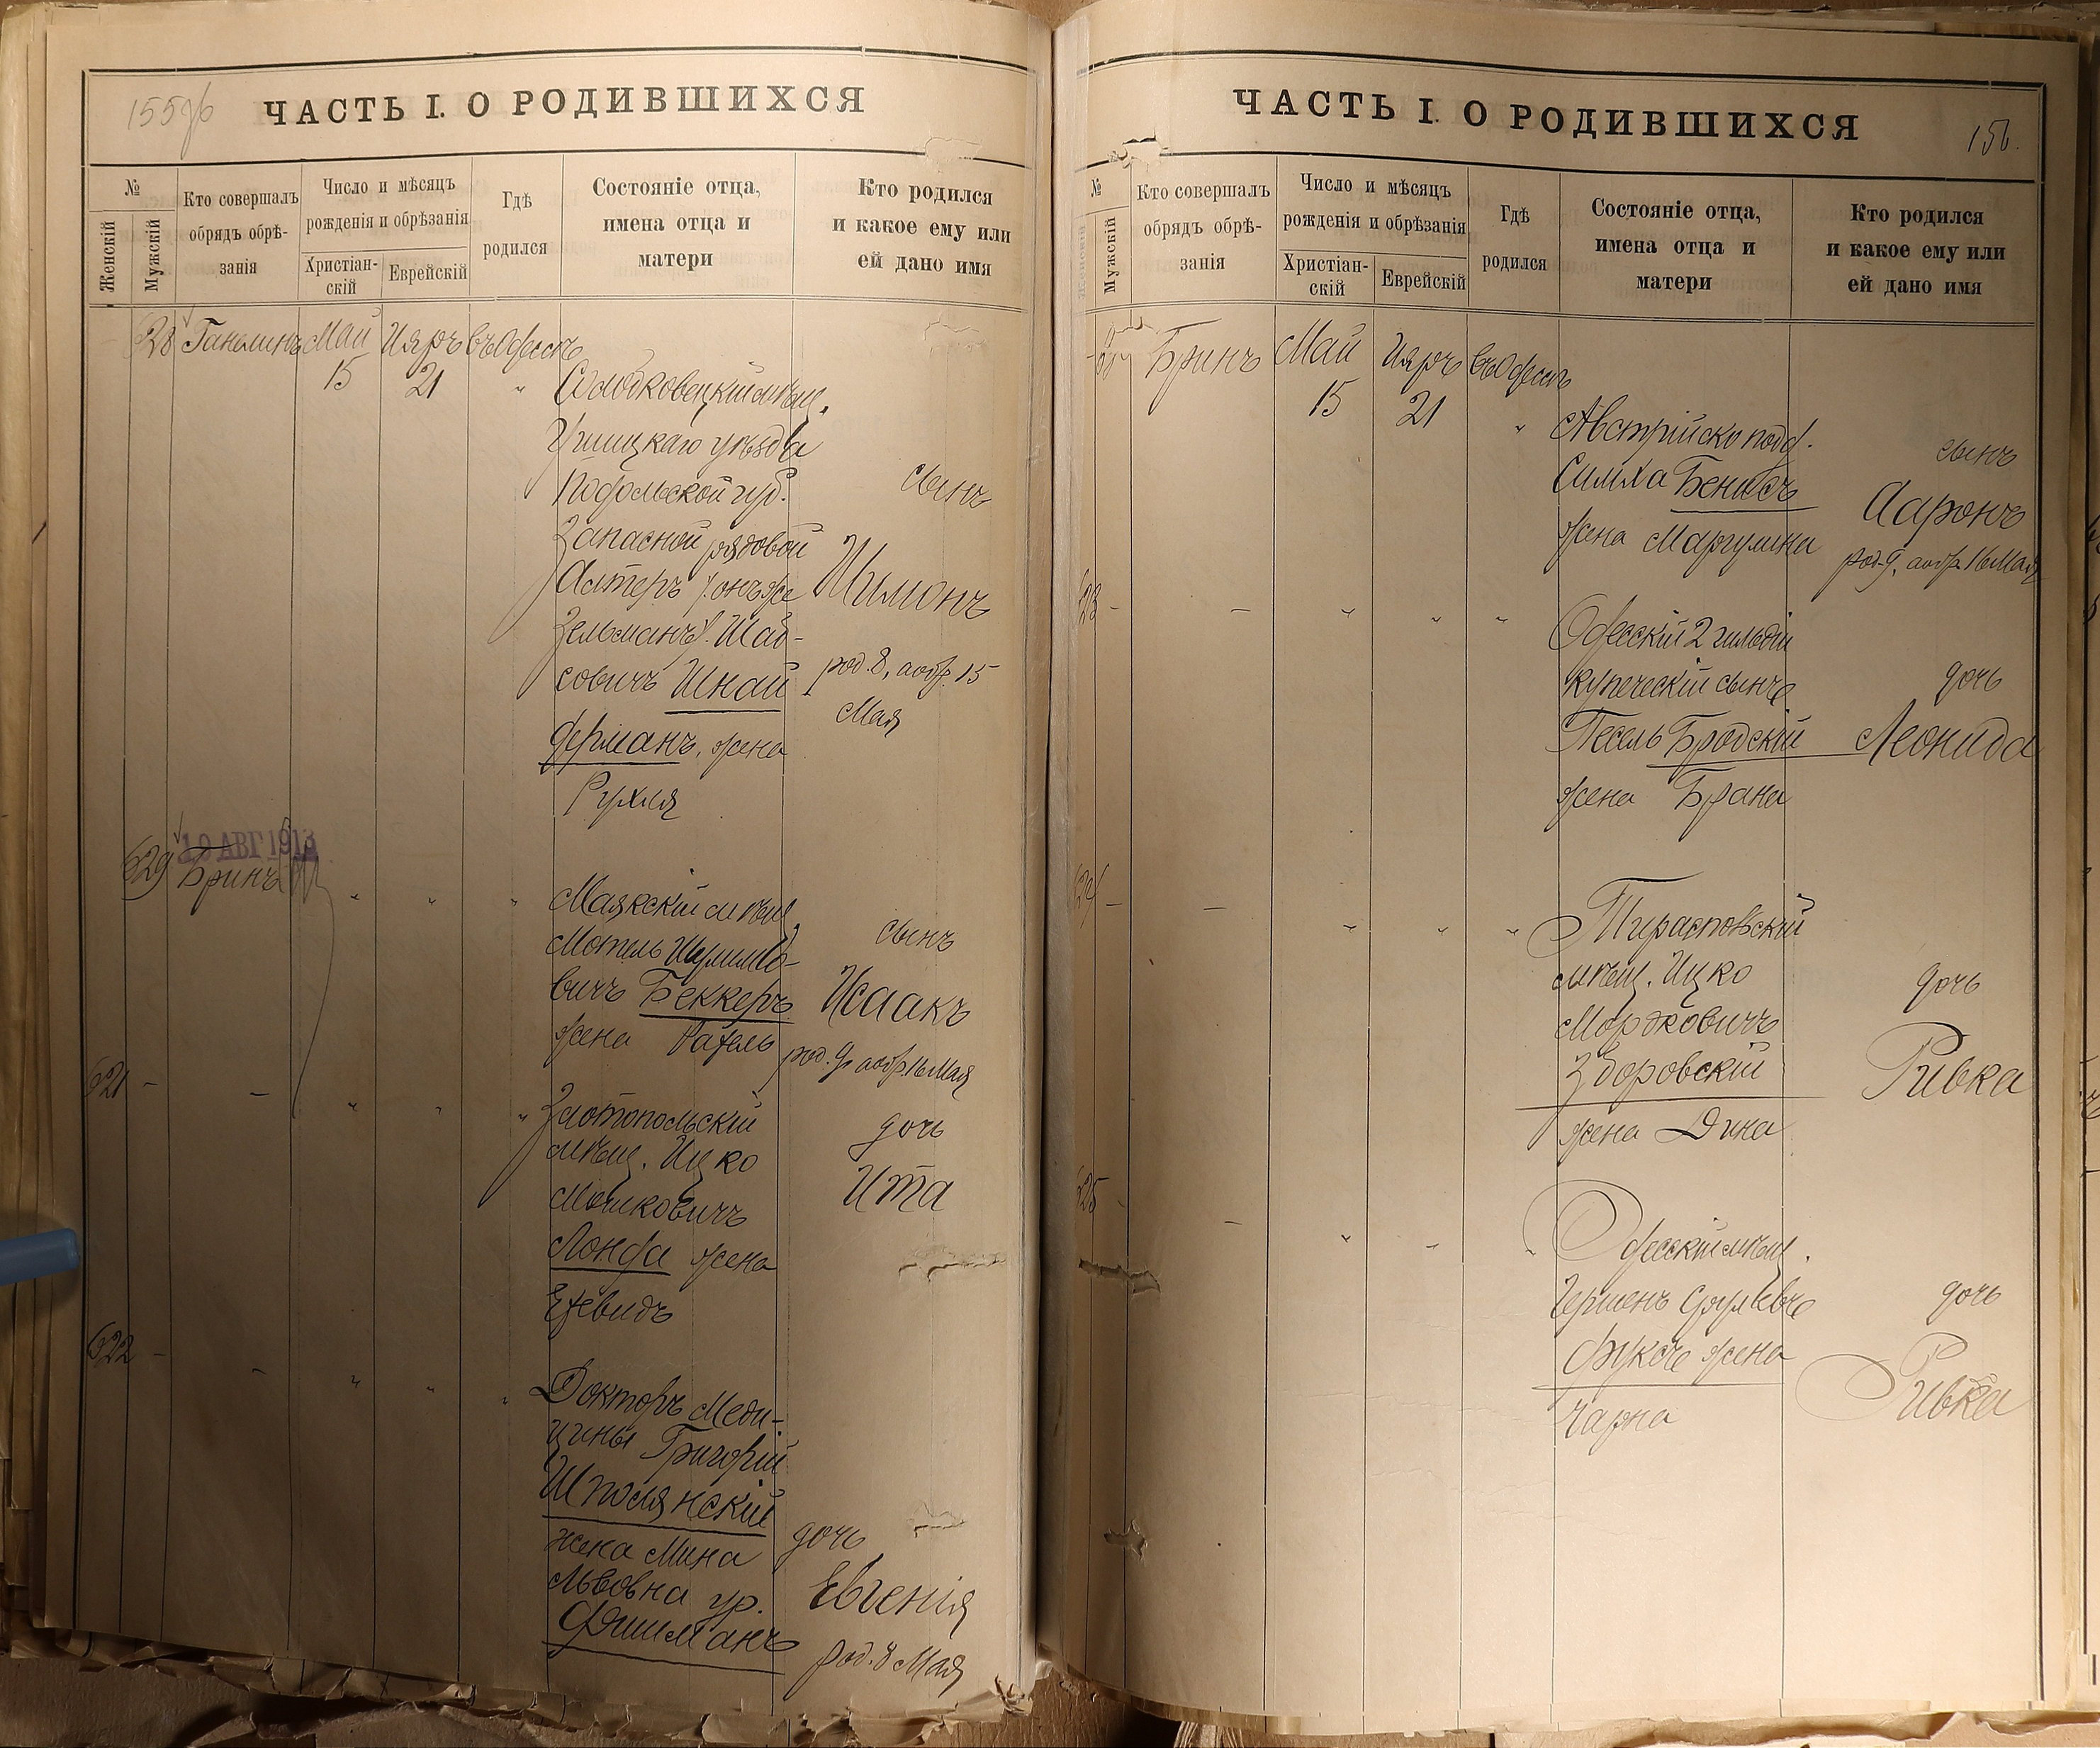 ЧАСТЬ I. О РОДИВШИХСЯ
№
Женскій
Мужскій
Кто совершалъ
обрядъ обрѣ-
занія
Число и мѣсяцъ
рожденія и обрѣзанія
Христіан-
скій
Еврейскій
Гдѣ
родился
Состояніе отца,
имена отца и
матери
Кто родился
и какое ему или
ей дано имя
628 Май Ияръ въ Одессѣ
15 21 "
мѣщ.
Ушицкаго уѣзда
Подольской губ.
Запасной рядовой
Алтеръ (онъ же
Зельманъ)
совичъ Шнай
дерманъ, жена
Рухля
сынъ
Шимонъ
род. 8, а обр. 15
Мая
19 АВГ 1913
629 Бринъ " " "
Маякскій мѣщ.
Мотель
вичъ Беккеръ
жена Рахель
сынъ
Исаакъ
род. 9 а обр. 16 Мая
621 - - " " "
Златопольскій
мѣщ. Ицко
Мошковичъ
Лонда жена
дочь
Ита
622 - - " " "
Докторъ Меди-
цины Григорій
Шполянскій
жена Мина
Львовна ур.
Фишманъ
дочь
Евгенія
род. 8 Мая
ЧАСТЬ I. О РОДИВШИХСЯ
156.
№
Мужскій
Кто совершалъ
обрядъ обрѣ-
занія
Число и мѣсяцъ
рожденія и обрѣзанія
Христіан-
скій
Еврейскій
Гдѣ
родился
Состояніе отца,
имена отца и
матери
Кто родился
и какое ему или
ей дано имя
Бринъ Май Ияръ въ Одессѣ
15 21 "
Австрійско подд.
Симха
жена
сынъ
Ааронъ
род. 9, а обр. 16 Мая
623 - - " " "
Одесскій 2 гильдіи
купеческій сынъ
Песель Бродскій
жена Брана
дочь
Леонида
624 - - " " "
Тираспольскій
мѣщ. Ицко
Мордковичъ
Зборовскій
жена Дина
дочь
Ривка
625 - - " " "
Одесскій мѣщ.
Гершенъ
Фуксъ жена
Чарна
дочь
Ривка